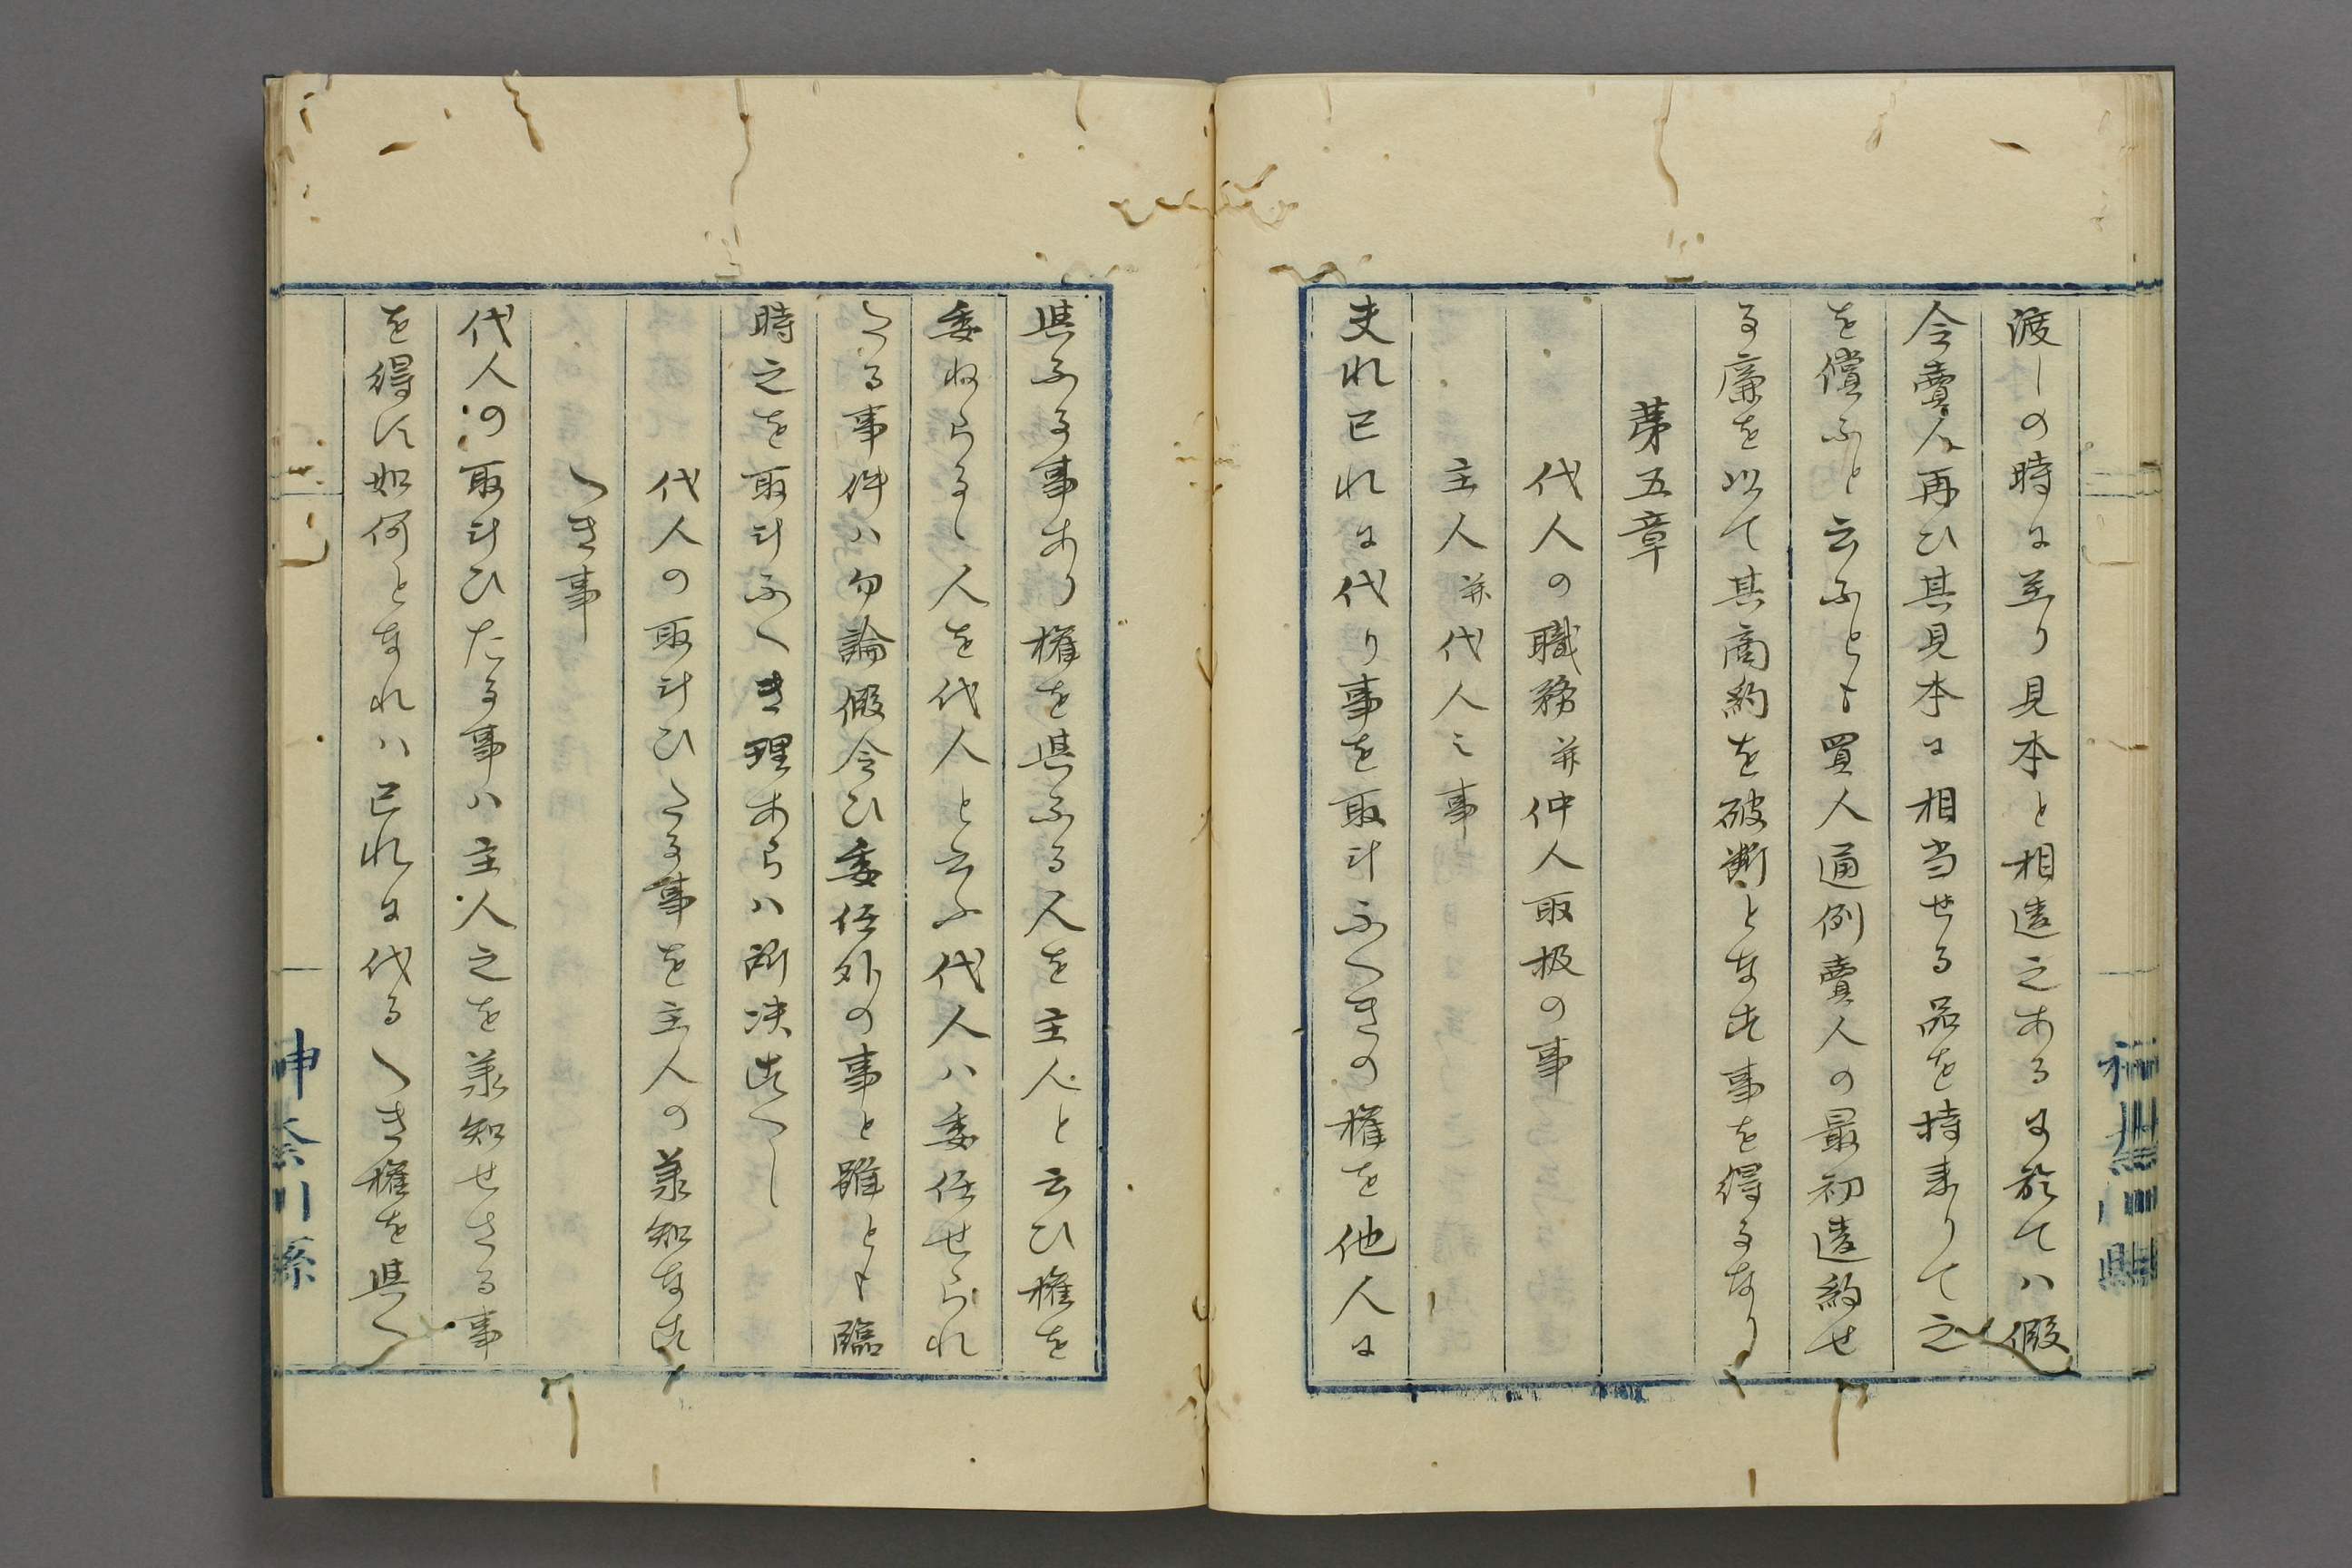 渡しの時に至り見本と相違之あるに於てハ假
令賣人再ひ其見本に相当せる品を持来りて之
を償ふと云ふとも買人通例賣人の最初違約せ
る廉を以て其商約を破断となす事を得るなり
第五章
代人の職務并仲人取扱の事
主人并代人之事
夫れ已れに代り事を取計ふへきの権を他人に
與ふる事あり権を與ふる人を主人と云ひ権を
委ねらるゝ人を代人と云ふ代人ハ委任せられ
たる事件ハ勿論假令ひ委任外の事と雖とも臨
時之を取計ふへき理あらハ所决すへし
代人の取計ひたる事を主人の承知なす
へき事
代人の取計ひたる事ハ主人之を承知せさる事
を得す如何となれハ已れに代るへき権を與へ
神奈川縣